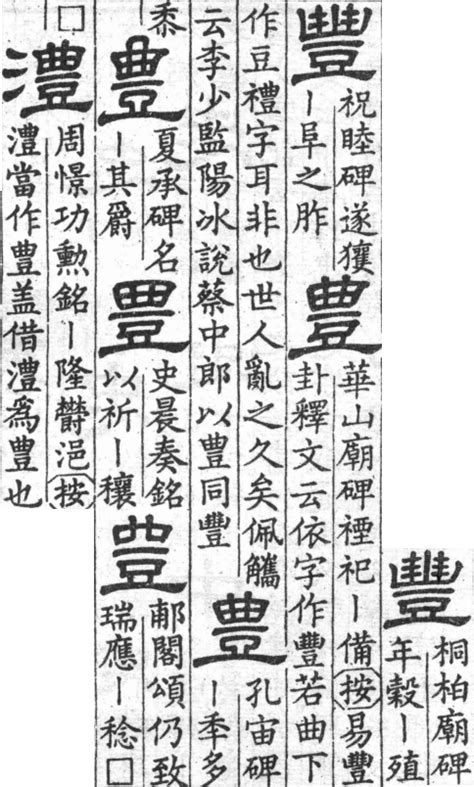 豐
桐柏廟碑
年穀ー殖
豐
祝睦碑遂獲
ー阜之胙
豊
華山廟碑禋祀ー備按易豐
卦釋文云依字作豐若曲下
作豆禮字耳非也世人亂之久矣佩觿
云李少監陽冰說蔡中郎以豊同豐
豊
孔宙碑
ー秊多
黍
豊
夏承碑名
ー其爵
豊
史晨奏銘
以祈ー穰
豊
郙閣頌仍致
瑞應ー稔□
□
澧
周憬功勲銘ー隆欎浥按
澧當作豊盖借澧爲豊也